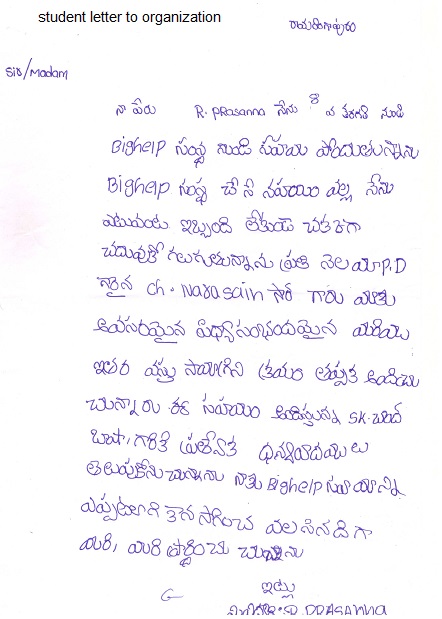 student letter to organization
రాయలింగాపురం
Sir/Madam
నా పేరు R. PRasanna నేను 8 వ తరగతి నుండి
Bighelp సంస్థ నుండి సహయం పొందుతున్నాను
Bighelp సంస్థ చేసే సహయం వల్ల నేను
ఎటువంటి ఇబ్బంది లేకుండ చక్కగా
చదువుకో గలుగుతున్నాను ప్రతి నెల మా P.D
గారైన ch. Narasaiah సార్ గారు మాకు
అవసరమైన విధ్యాసంభందమైన మరియు
ఇతర వస్తు సామాగ్రిని క్రమం తప్పక అందించు
చున్నారు ఈ సహయం అందిస్తున్న SK. చాంద్
బాషా, గారికి ప్రత్యేక ధన్యవాదములు
తెలుపుకొను చున్నాను నాకు Bighelp సహాయాన్ని
ఎప్పటికి కొన సాగించ వలసినదిగా
మరి, మరి ప్రార్థించు చున్నాను
ఇట్లు
R. PRASANNA